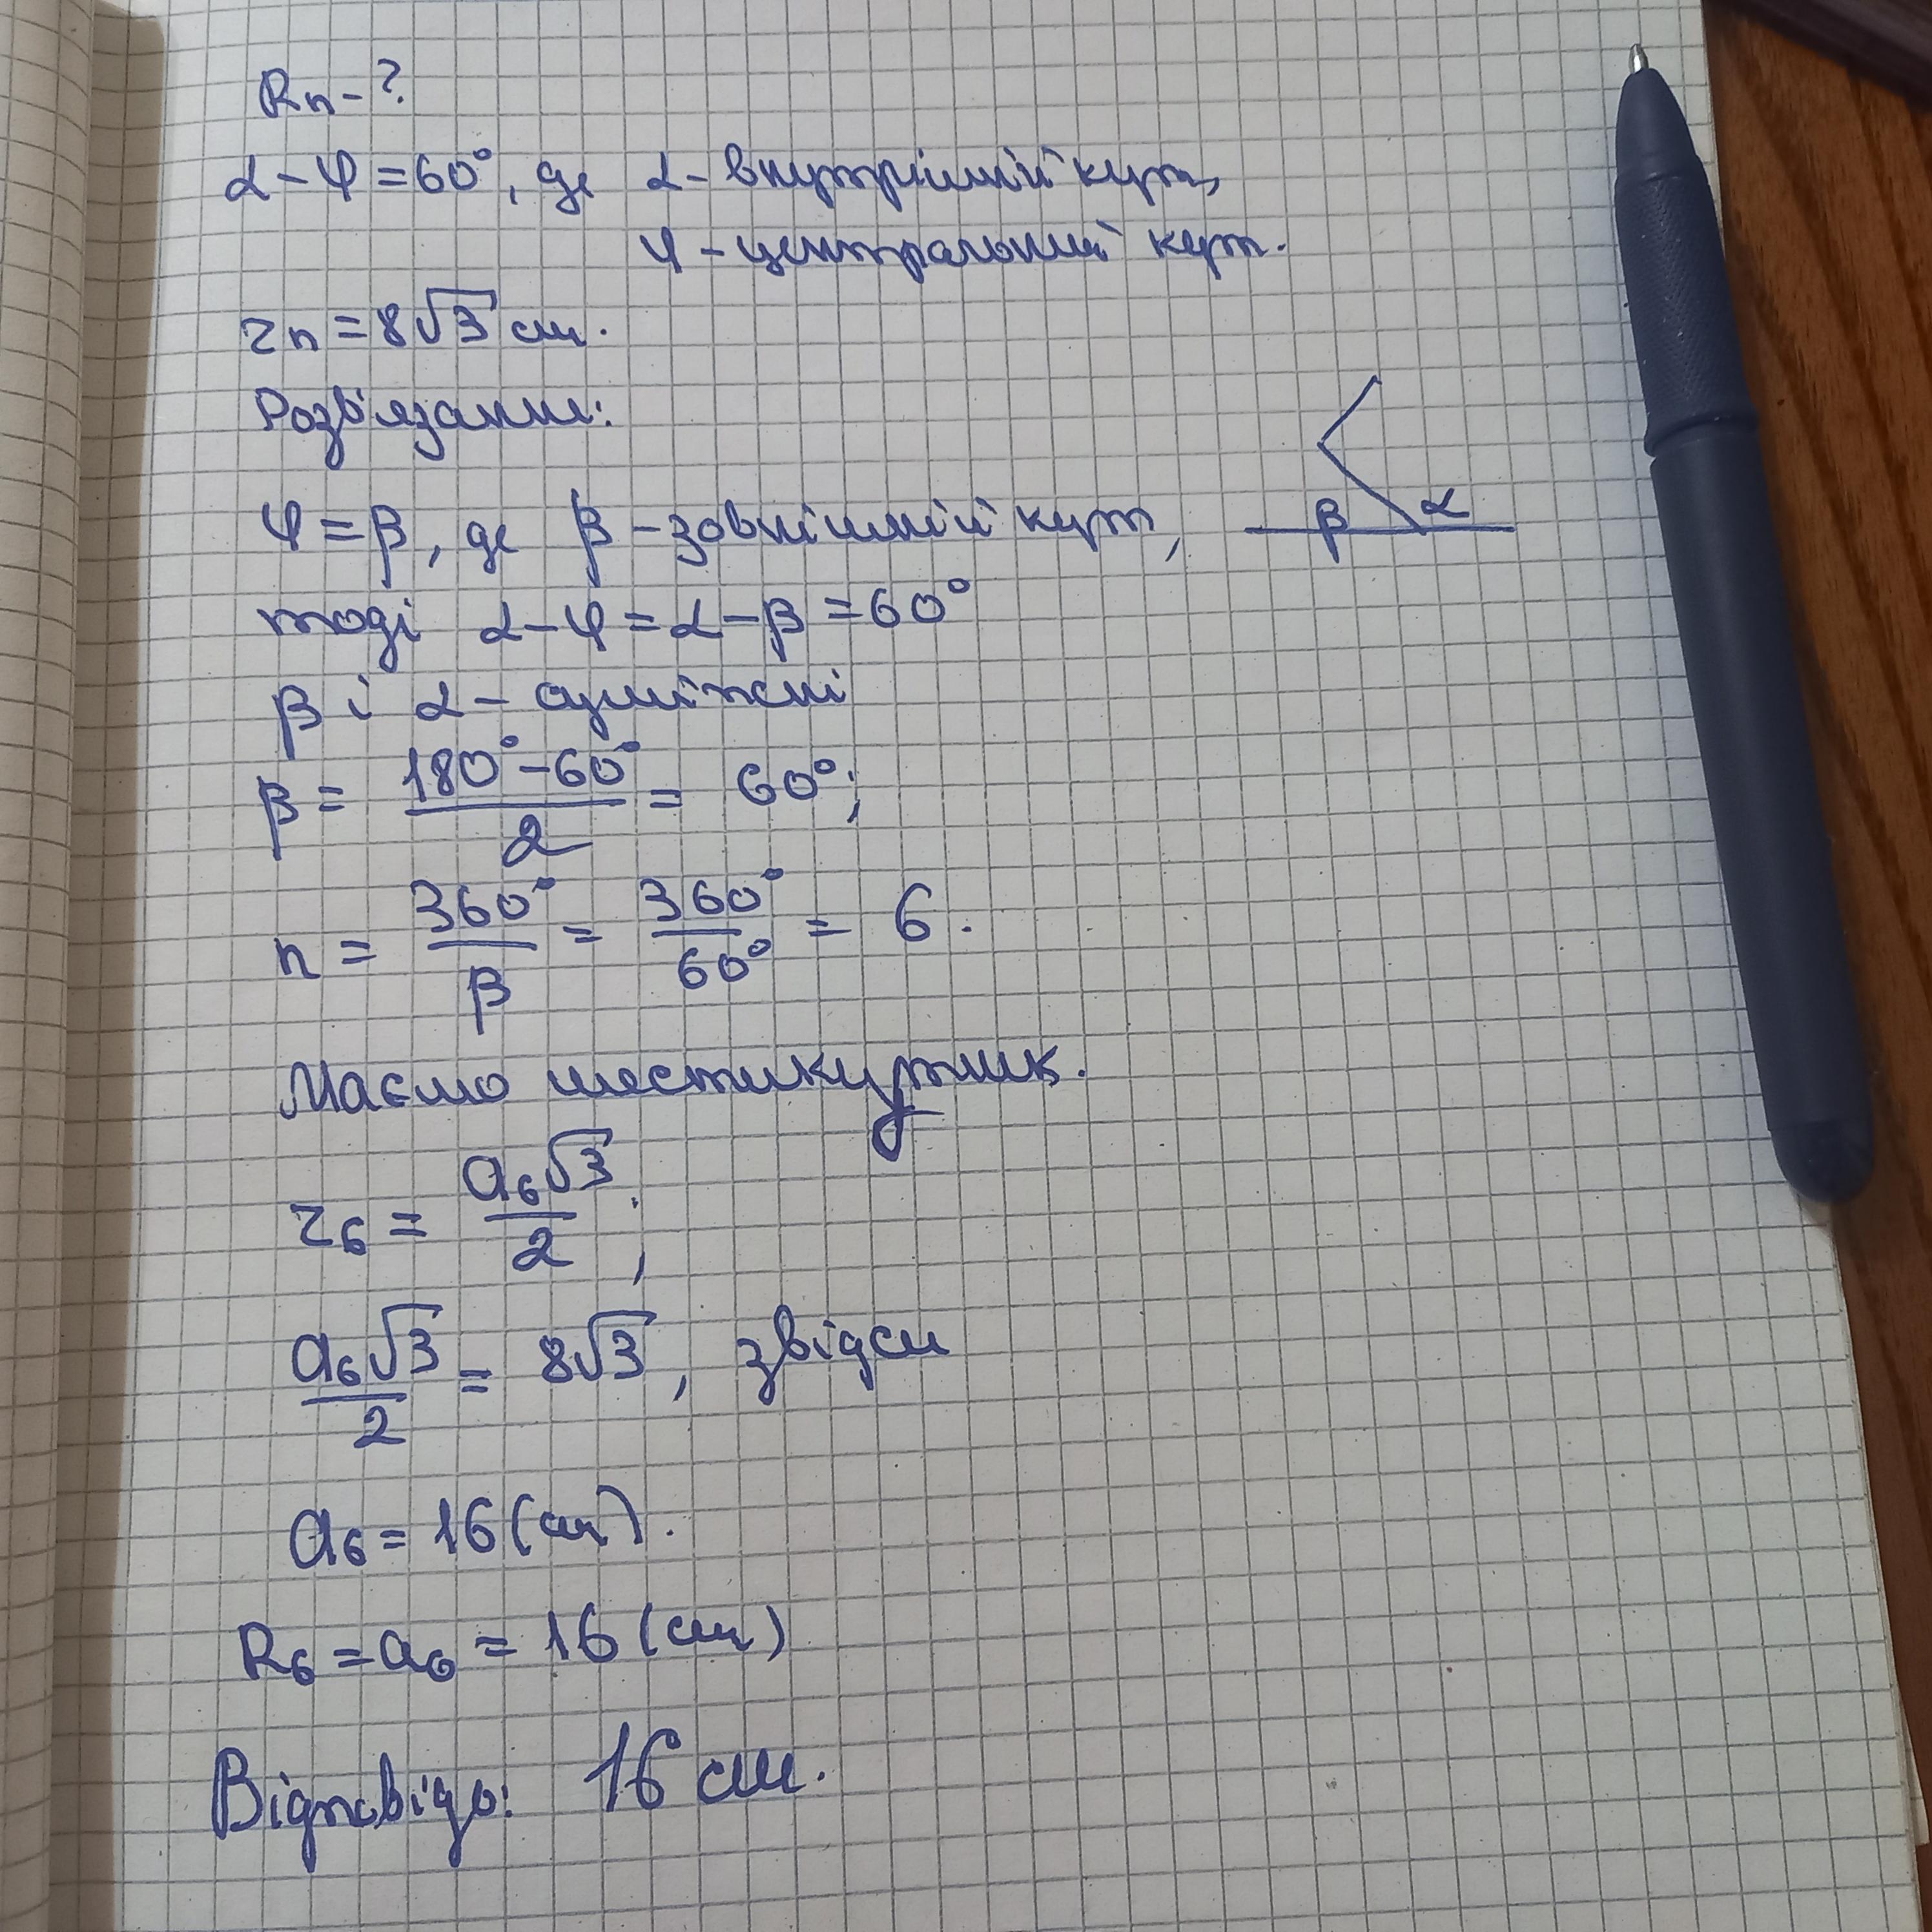 Rn - ?
α - φ = 60°, де α - внутрішній кут,
φ - центральний кут.
rn = 8√3 см.
Розв'язання:
φ = β, де β - зовнішній кут,
β α
тоді α - φ = α - β = 60°
β і α - суміжні
β = (180° - 60°)/2 = 60°;
n = 360°/β = 360°/60° = 6.
Маємо шестикутник.
r6 = a6√3/2;
a6√3/2 = 8√3, звідси
a6 = 16 (см).
R6 = a6 = 16 (см)
Відповідь: 16 см.